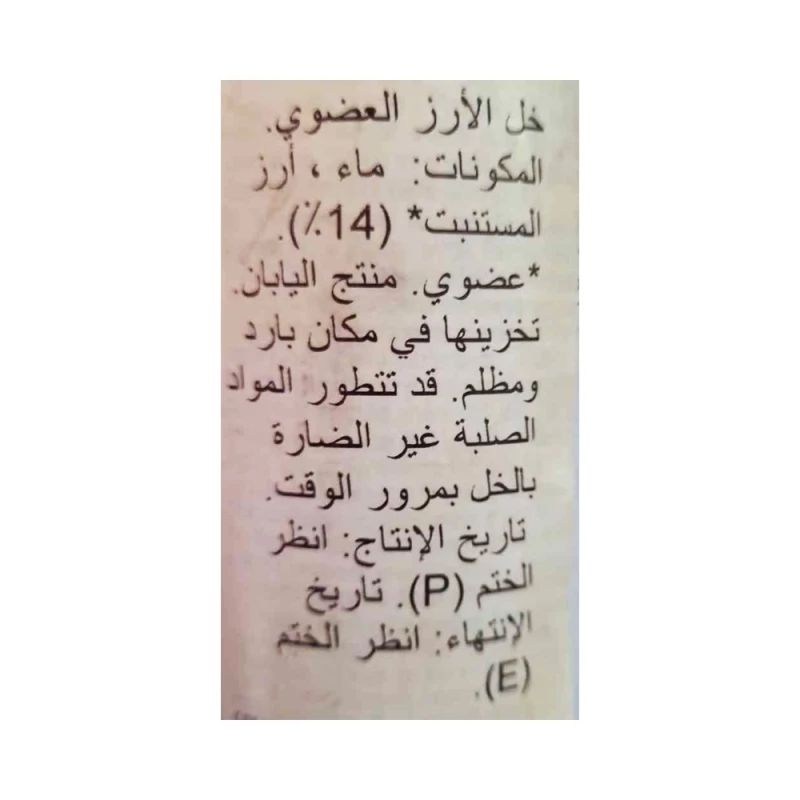 خل الأرز العضوي.
المكونات: ماء ، أرز
المستنبت* (14٪).
*عضوي. منتج اليابان.
تخزينها في مكان بارد
ومظلم. قد تتطور المواد
الصلبة غير الضارة
بالخل بمرور الوقت.
تاريخ الإنتاج: انظر
الختم (P). تاريخ
الإنتهاء: انظر الختم
(E).